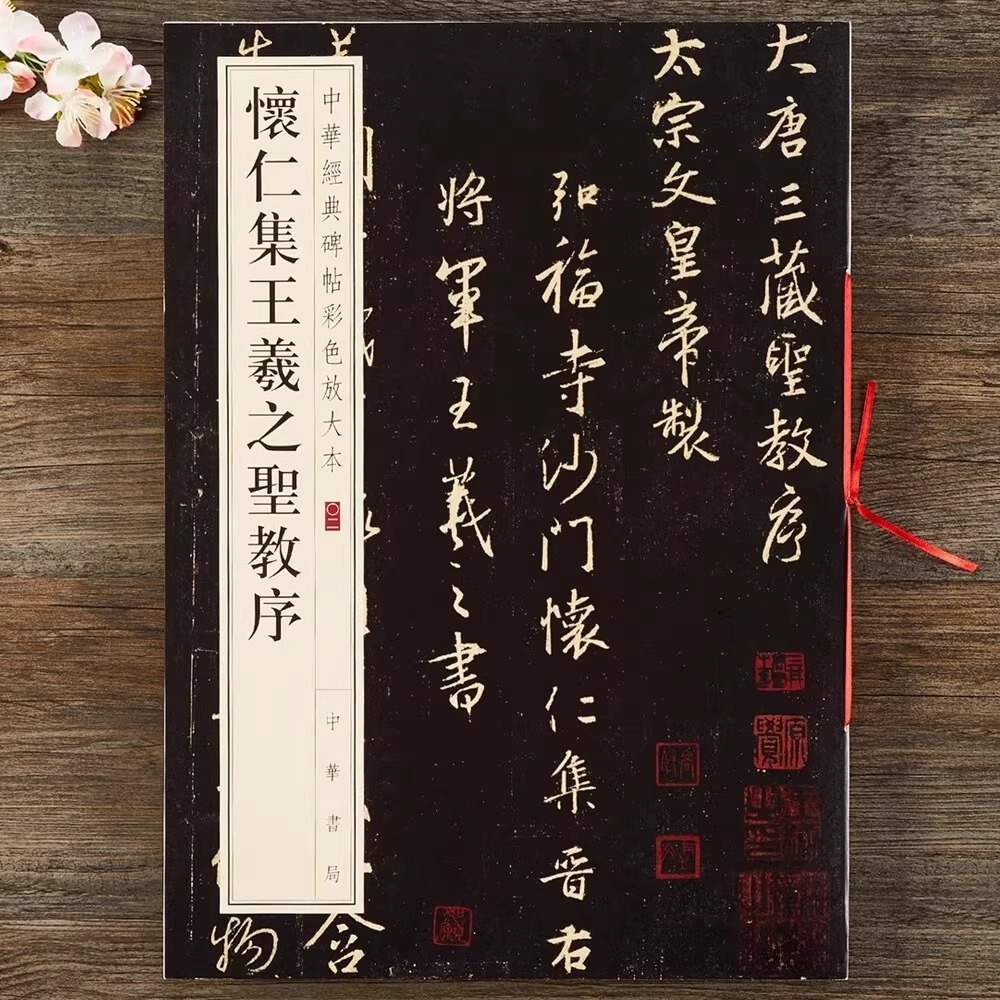 大唐三藏聖教序
太宗文皇帝製
弘福寺沙門懷仁集晉右
將軍王羲之書
中華經典碑帖彩色放大本 〇二
中華書局
懷仁集王羲之聖教序
含
物